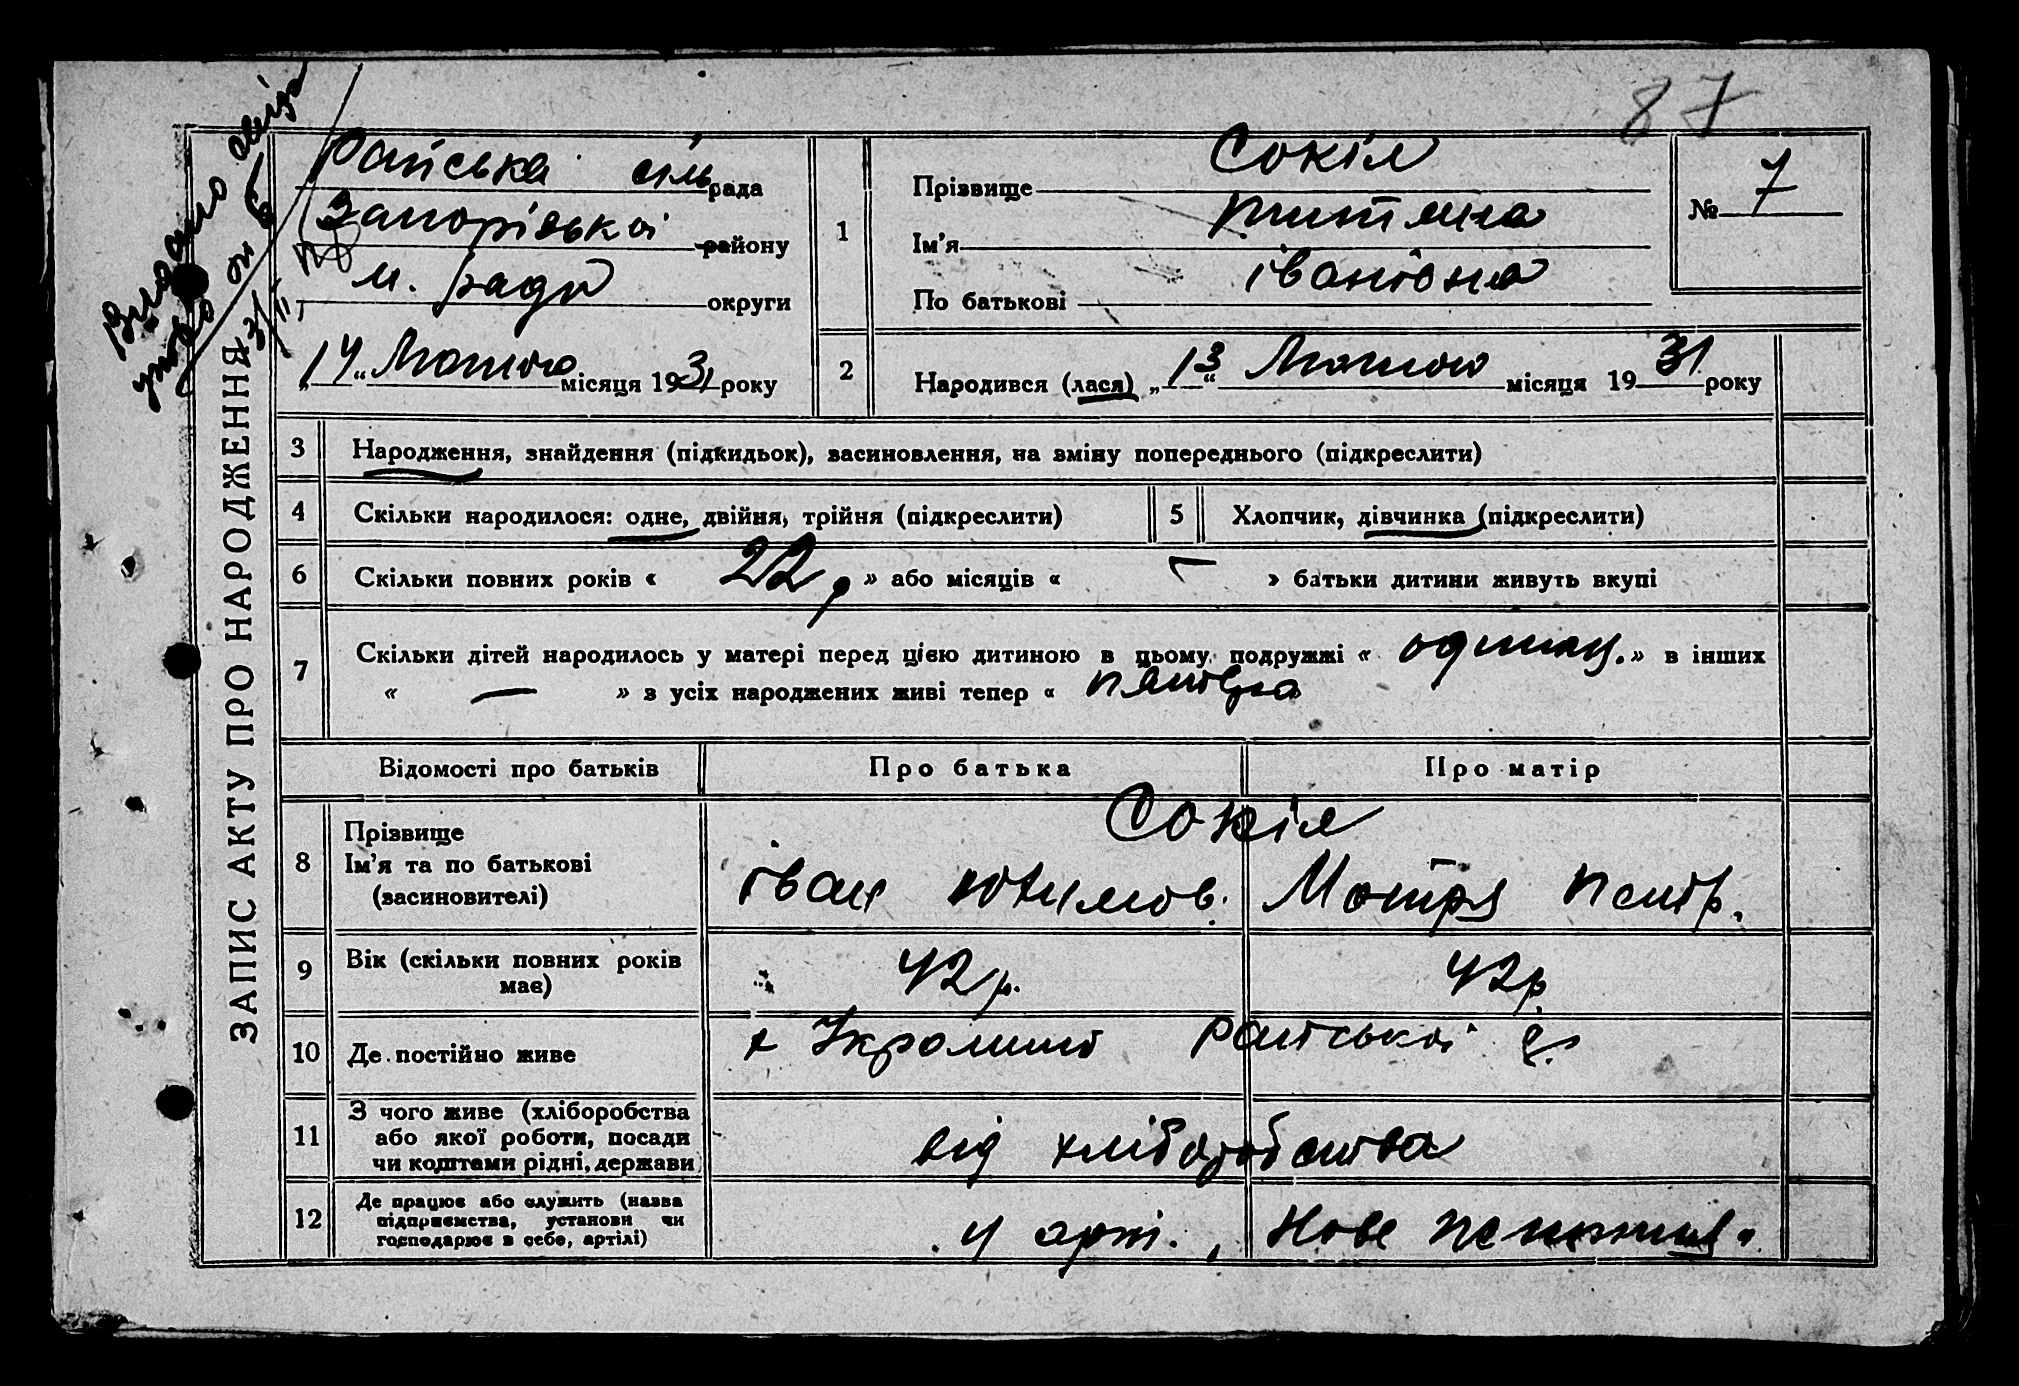 87
Райська сіль рада
Запорізької району
м. ради округи
„14“ Лютого місяця 1931 року
1
Прізвище Сокіл
Ім'я
По батькові Іванівна
№ 7
2
Народився (лася) „13“ Лютого місяця 1931 року
ЗАПИС АКТУ ПРО НАРОДЖЕННЯ
3 Народження, знайдення (підкидьок), засиновлення, на зміну попереднього (підкреслити)
4 Скільки народилося: одне, двійня, трійня (підкреслити)
5 Хлопчик, дівчинка (підкреслити)
6 Скільки повних років « 22 р » або місяців « — » батьки дитини живуть вкупі
7 Скільки дітей народилось у матері перед цією дитиною в цьому подружжі « одинац. » в інших
« — » з усіх народжених живі тепер «
Відомості про батьків
Про батька
Про матір
8 Прізвище
Ім'я та по батькові
(засиновителі)
Сокіл
Іван Юхимов. Мотря Петр.
9 Вік (скільки повних років
має)
42 р. 42 р.
10 Де постійно живе
х Райської с.
11 З чого живе (хліборобства
або якої роботи, посади
чи коштами рідні, держави)
від хліборобства
12 Де працює або служить (назва
підприємства, установи чи
господарює в себе, артілі)
у арт. „Нове